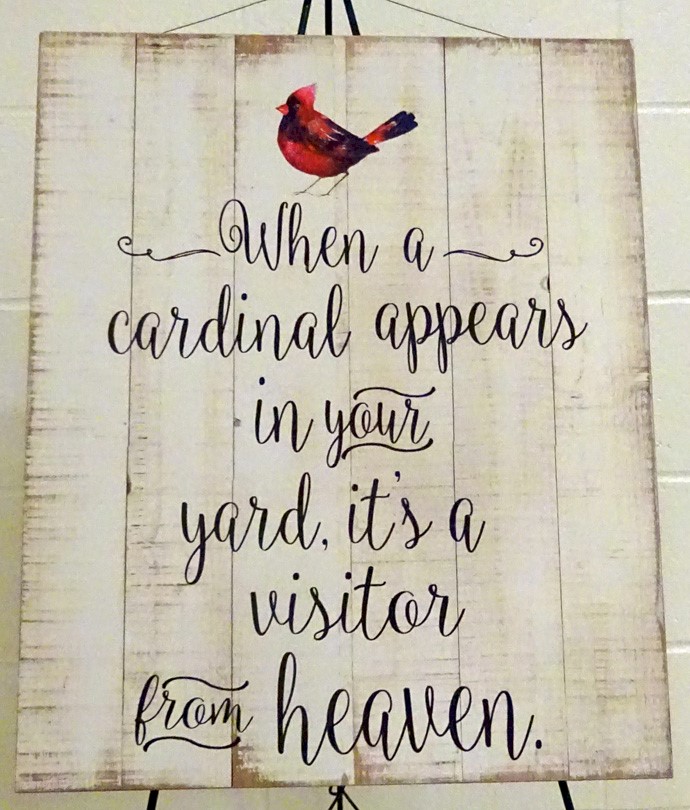 When a
cardinal appears
in your
yard, it's a
visitor
from heaven.